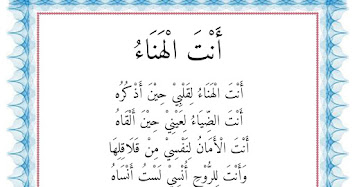 أَنْتَ الْهَنَاءُ
أَنْتَ الْهَنَاءُ لِقَلْبِيْ حِيْنَ أَذْكُرُه
أَنْتَ الضِّيَاءُ لِعَيْنِيْ حِيْنَ أَلْقَاهُ
أَنْتَ الْأَمَانُ لِنَفْسِيْ مِنْ قَلَاقِلِهَا
وَأَنْتَ لِلرُّوْحِ أُنْسِيْ لَسْتُ أَنْسَاهُ